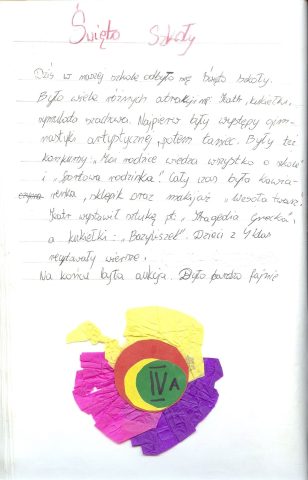 Święto Szkoły
Dziś w naszej szkole odbyło się święto szkoły.
Było wiele różnych atrakcji np. teatr, kukiełki,
symultana szachowa. Najpierw były występy gim-
nastyki artystycznej, potem taniec. Były też
konkursy: "Moi rodzice wiedzą wszystko o szkole"
i "Sportowa rodzinka". Cały czas była kawia-
renka, sklepik oraz makijaż "Wesoła twarz".
Teatr wystawił sztukę pt. "Tragedia grecka",
a kukiełki: "Bazyliszek". Dzieci z 4 klas
recytowały wiersze.
Na końcu była aukcja. Było bardzo fajnie
IV A